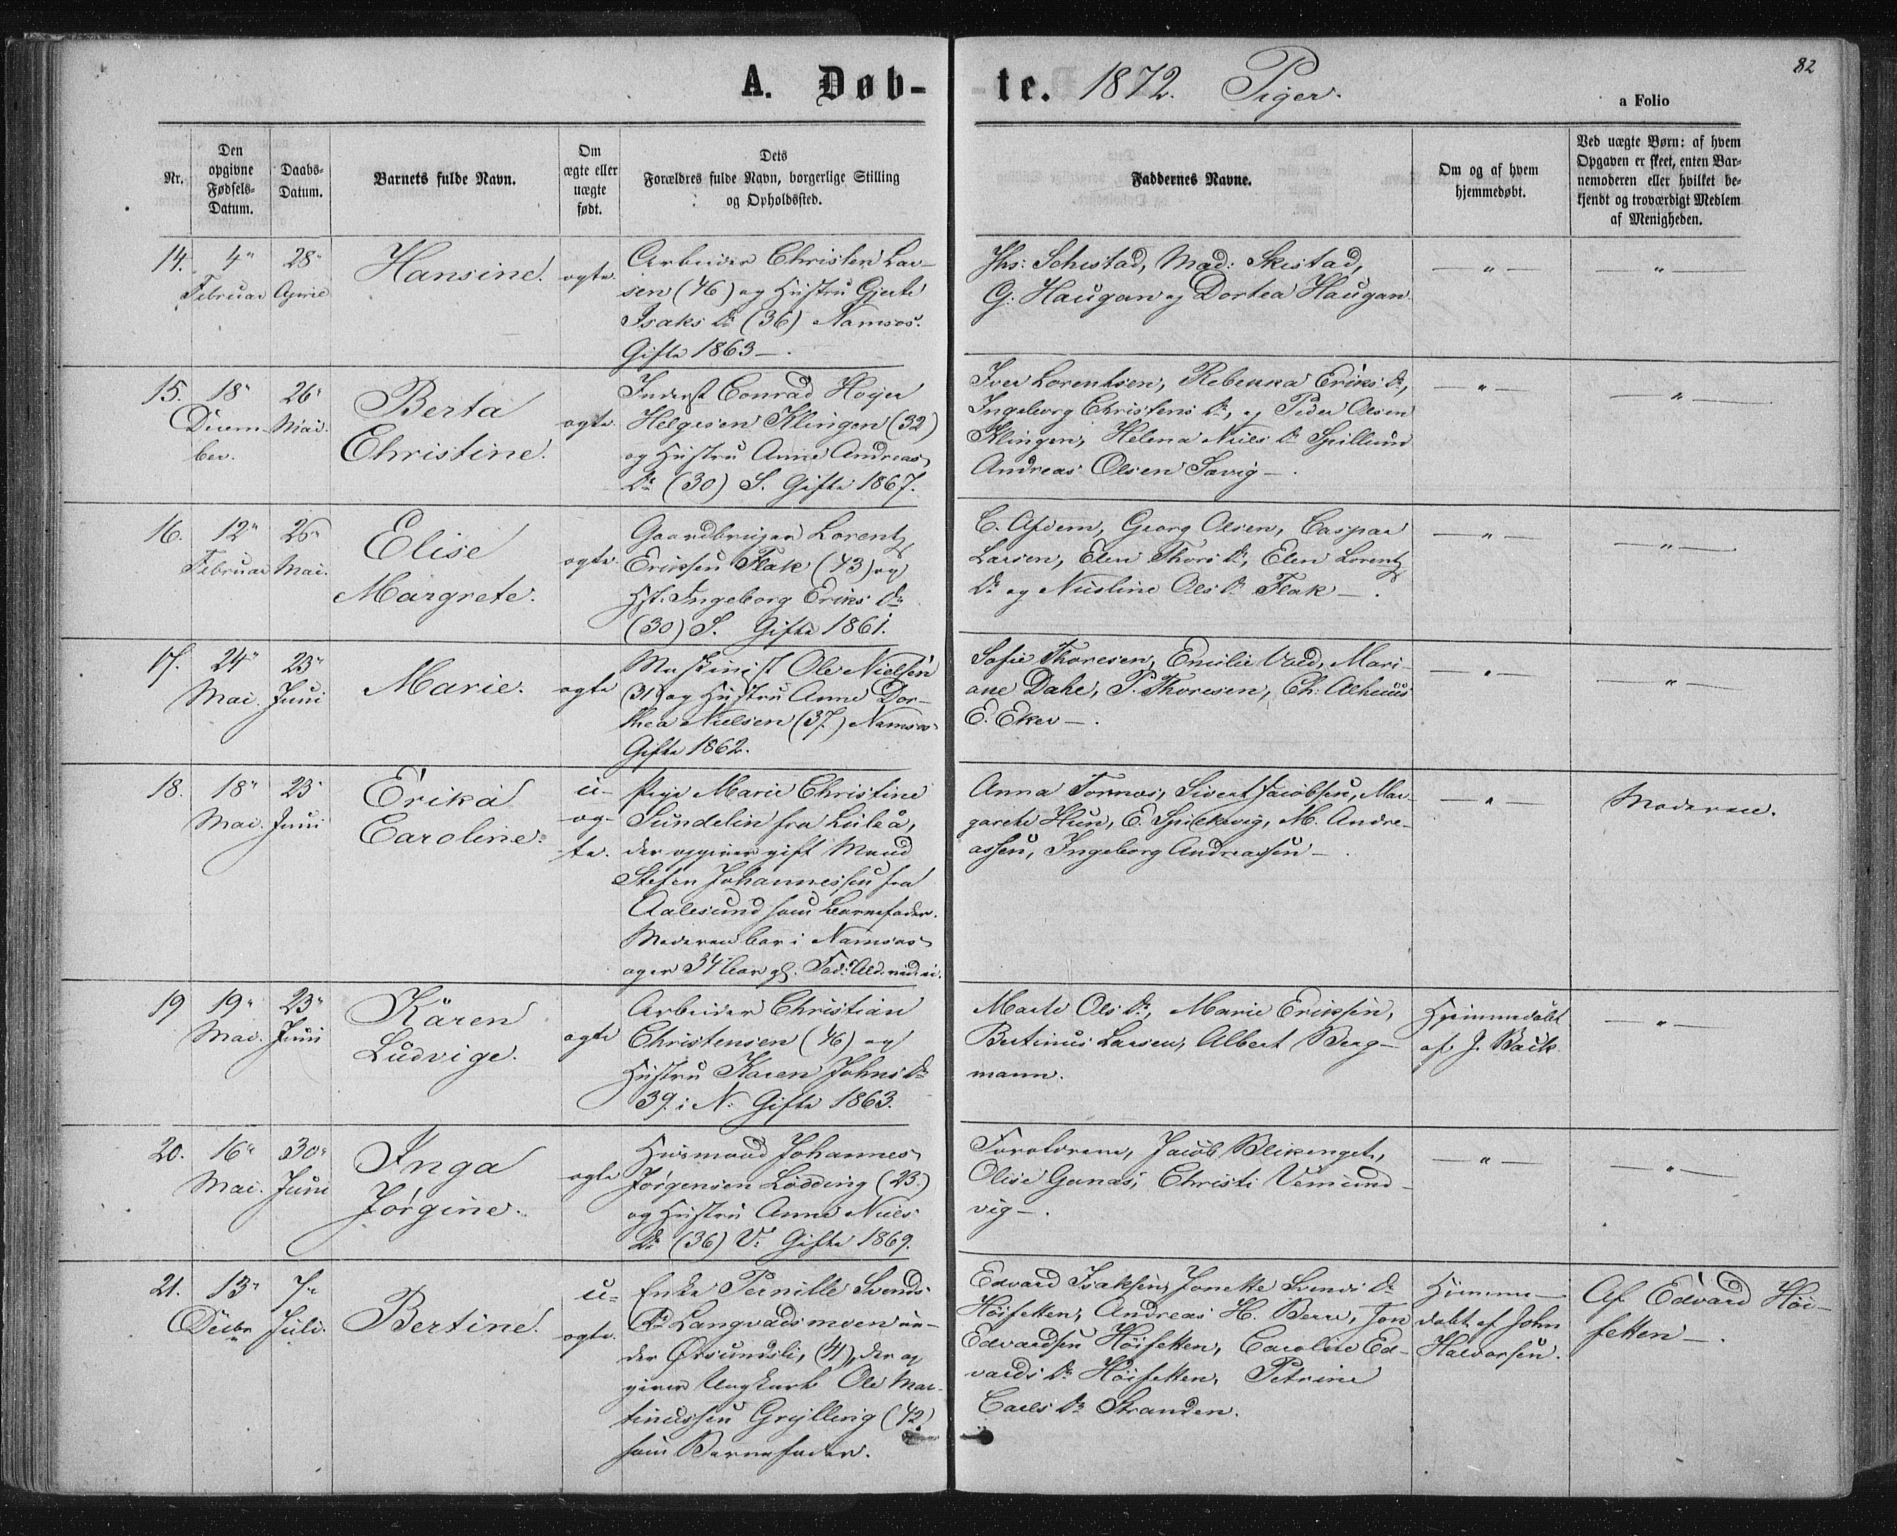 82
A. Døb- -te. 1872. Piger.
a Folio
Nr.
Den
opgivne
Fødsels-
Datum.
Daabs-
Datum.
Barnets fulde Navn.
Om
ægte eller
uægte
født.
Dets
Forældres fulde Navn, borgerlige Stilling
og Opholdssted.
Faddernes Navne.
Om og af hvem
hjemmedøbt.
Ved uægte Børn: af hvem
Opgaven er skeet, enten Bar-
nemoderen eller hvilket be-
kjendt og troværdigt Medlem
af Menigheden.
14.
4"
Februar
28"
April
Hansine.
ægte
Arbeider Christen Lar-
sen (46) og Hustru Gjerte
Isaks Dr (36) Namsos.
Gifte 1863 —.
Skistad,
G: Haugan og Dortea Haugan
— " —
— " —
15.
18"
Decem-
ber.
26"
Mai.
Berta
Christine.
ægte.
Inderst Conrad Hojer
Helgesen Klingen (32)
og Hustru Anne Andreas
Dr (30) S. Gifte 1867.
Iver Lorentsen, Rebekka Eriks Dr,
Ingeborg Christens Dr, og Peder Olsen
Klingen, Helena Niels Dr Spillum
Andreas Olsen Savig —.
— " —
— " —
16.
12"
Februar
26"
Mai.
Elise
Margrete.
ægte.
Gaardbruger Lorentz
Eriksen Flak (43) og
Hst. Ingeborg Eriks Dr
(30) S. Gifte 1861.
Georg Olsen, Caspar
Larsen, Elen Thors Dr, Elen Lorentz
Dr og Nielsine Ols Dr Flak —.
— " —
— " —
17.
24"
Mai.
23"
Juni
Marie.
ægte
Maskinist Ole Nielsen
(31) og Hustru Anne Dor-
thea Nielsen (37) Namsos
Gifte 1862.
Sofie Thoresen, Emilie Vold, Mari-
ane Dahe, P. Thoresen, Ch. Alhuus
E. Eker —.
— " —
— " —
18.
18"
Mai.
23"
Juni
Erika
Caroline.
u-
æg-
te.
Pige Marie Christine
Sundelin fra Luleå,
der opgiver gift Mand
Stefen Johannessen fra
Aalesund som Barnefader.
Moderen bor i Namsos
og er 34 Aar gl.
Anna Tornos, Sivert Jacobsen, Mar-
garete Hun, E. Spillevig, M. Andre-
assen, Ingeborg Andreassen —.
— " —
Moderen.
19
19"
Mai.
23"
Juni
Karen
Ludvige.
ægte
Arbeider Christian
Christensen (46) og
Hustru Karen Johns Dr
39. i N. Gifte 1863.
Marte Ols Dr, Marie Eriksen,
Bertinus Larsen, Albert Berg-
mann.
Hjemmedøbt
af J. Backe
— " —
20.
16"
Mai.
30"
Juni
Inga
Jørgine.
ægte
Husmand Johannes
Jørgensen Lødding (23.)
og Hustru Anne Niels
Dr (36) V. Gifte 1869.
Forældrene, Jacob Blikenget,
Olise Ganas, Christi Vemund-
vig —.
— " —
— " —
21.
13"
Decbr
7"
Juli.
Bertine.
u-
ægte.
Enke Pernille Svends
Dr Langvadsmoen un-
der Øvsundsli, (41), der op
giver Ungkarl Ole Mar-
tinussen Grylling (42)
som Barnefader.
Edvard Isaksen, Jonette Svends Dr
Høifetten, Andreas H. Berre, Jon
Edvardsen Høifetten, Caroline Ed-
vards Dr Høifetten, Petrine
Carls Dr Stranden.
Hjemme-
døbt af John
Halvorsen.
Af Edvard Høi-
fetten —.